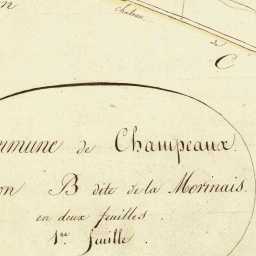 C
mmune de Champeaux
on B dite de la Morinais.
en deux feuilles.
1re feuille.